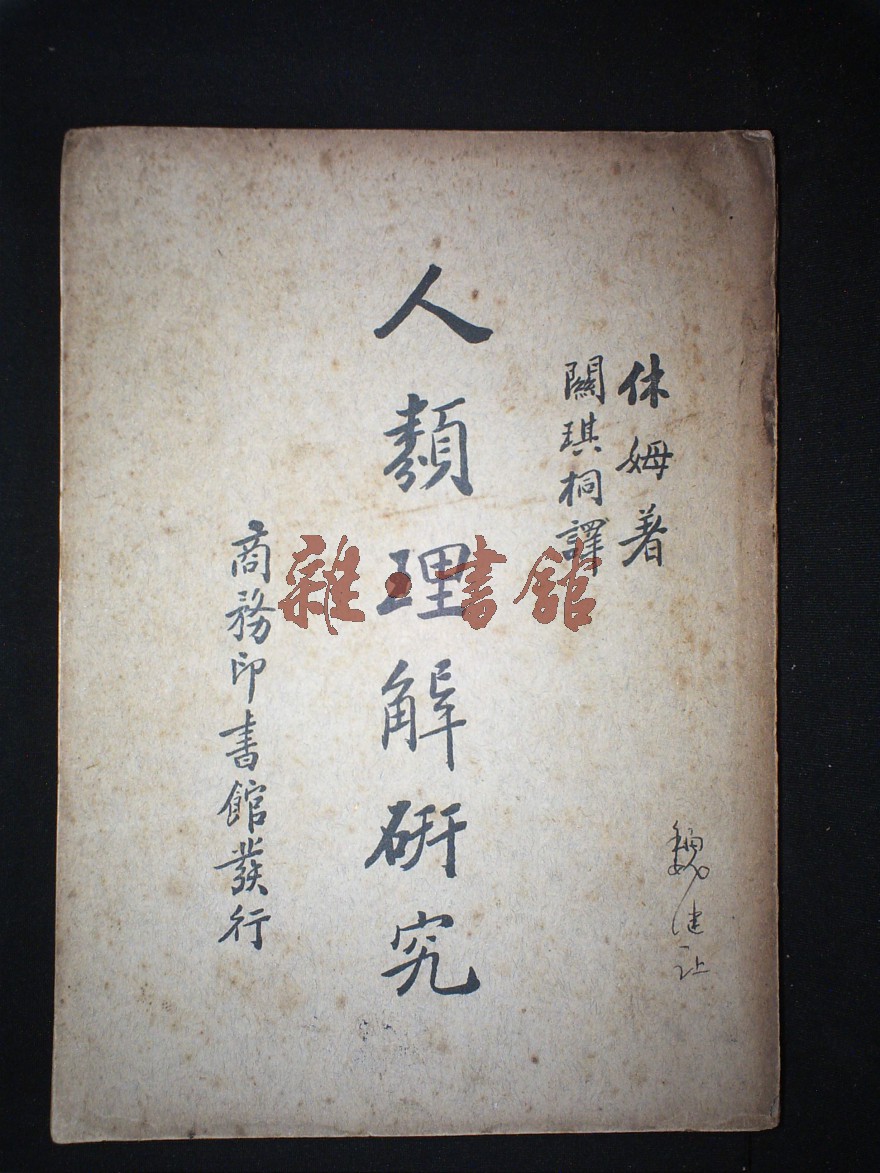 休姆著
關琪桐譯
人類理解研究
商務印書館發行
雜·書館
魏